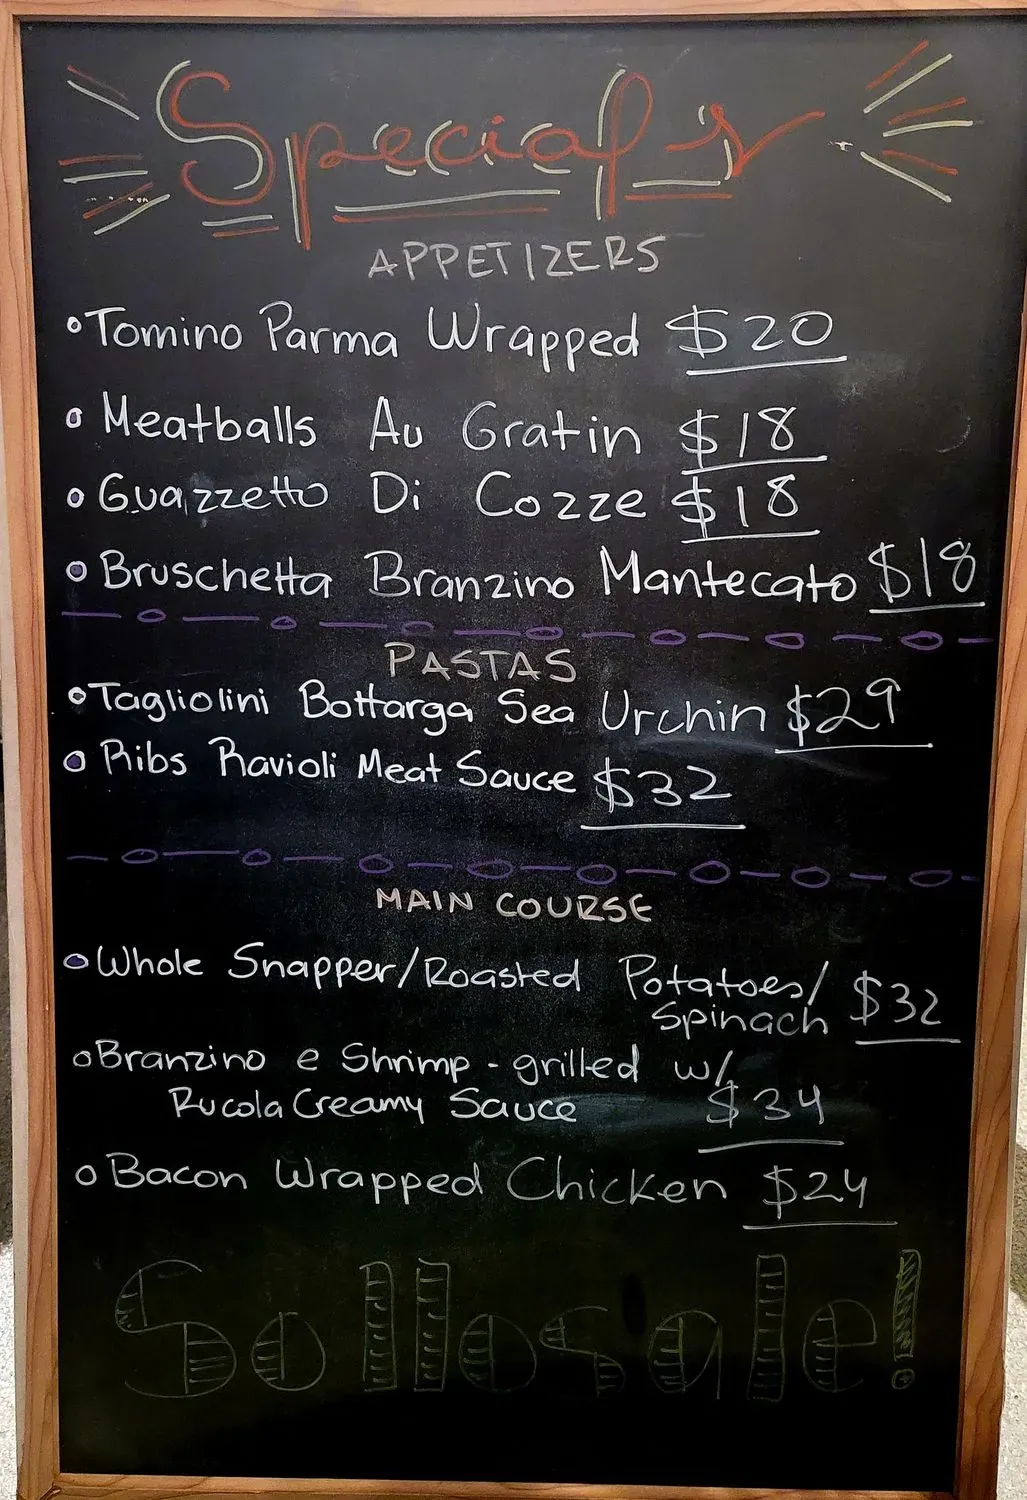 Specials
APPETIZERS
Tomino Parma Wrapped $20
Meatballs Au Gratin $18
Guazzetto Di Cozze $18
Bruschetta Branzino Mantecato $18
PASTAS
Tagliolini Bottarga Sea Urchin $29
Ribs Ravioli Meat Sauce $32
MAIN COURSE
Whole Snapper/Roasted Potatoes/
Spinach $32
Branzino e Shrimp - grilled w/
Rucola Creamy Sauce $34
Bacon Wrapped Chicken $24
Sollosale!